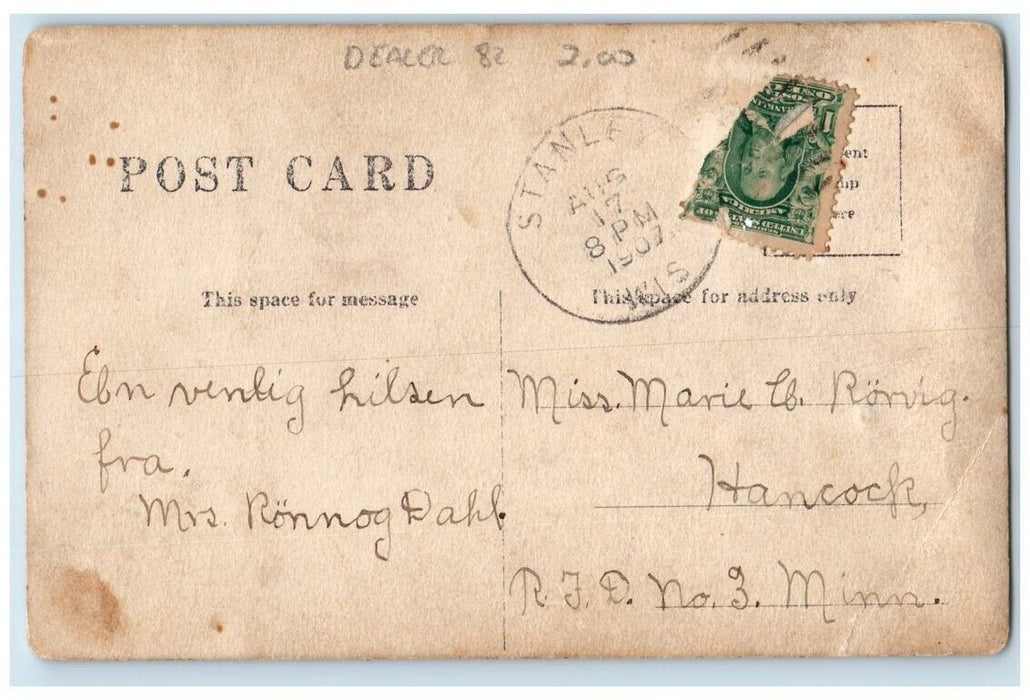 DEALER 82 2.00
POST CARD
STANLEY
AUG
17
8 PM
1907
WIS
This space for message
This space for address only
Een venlig hilsen
fra.
Mrs. Rönnog Dahl.
Miss. Marie C. Rörvig.
Hancock,
R.F.D. No. 3. Minn.